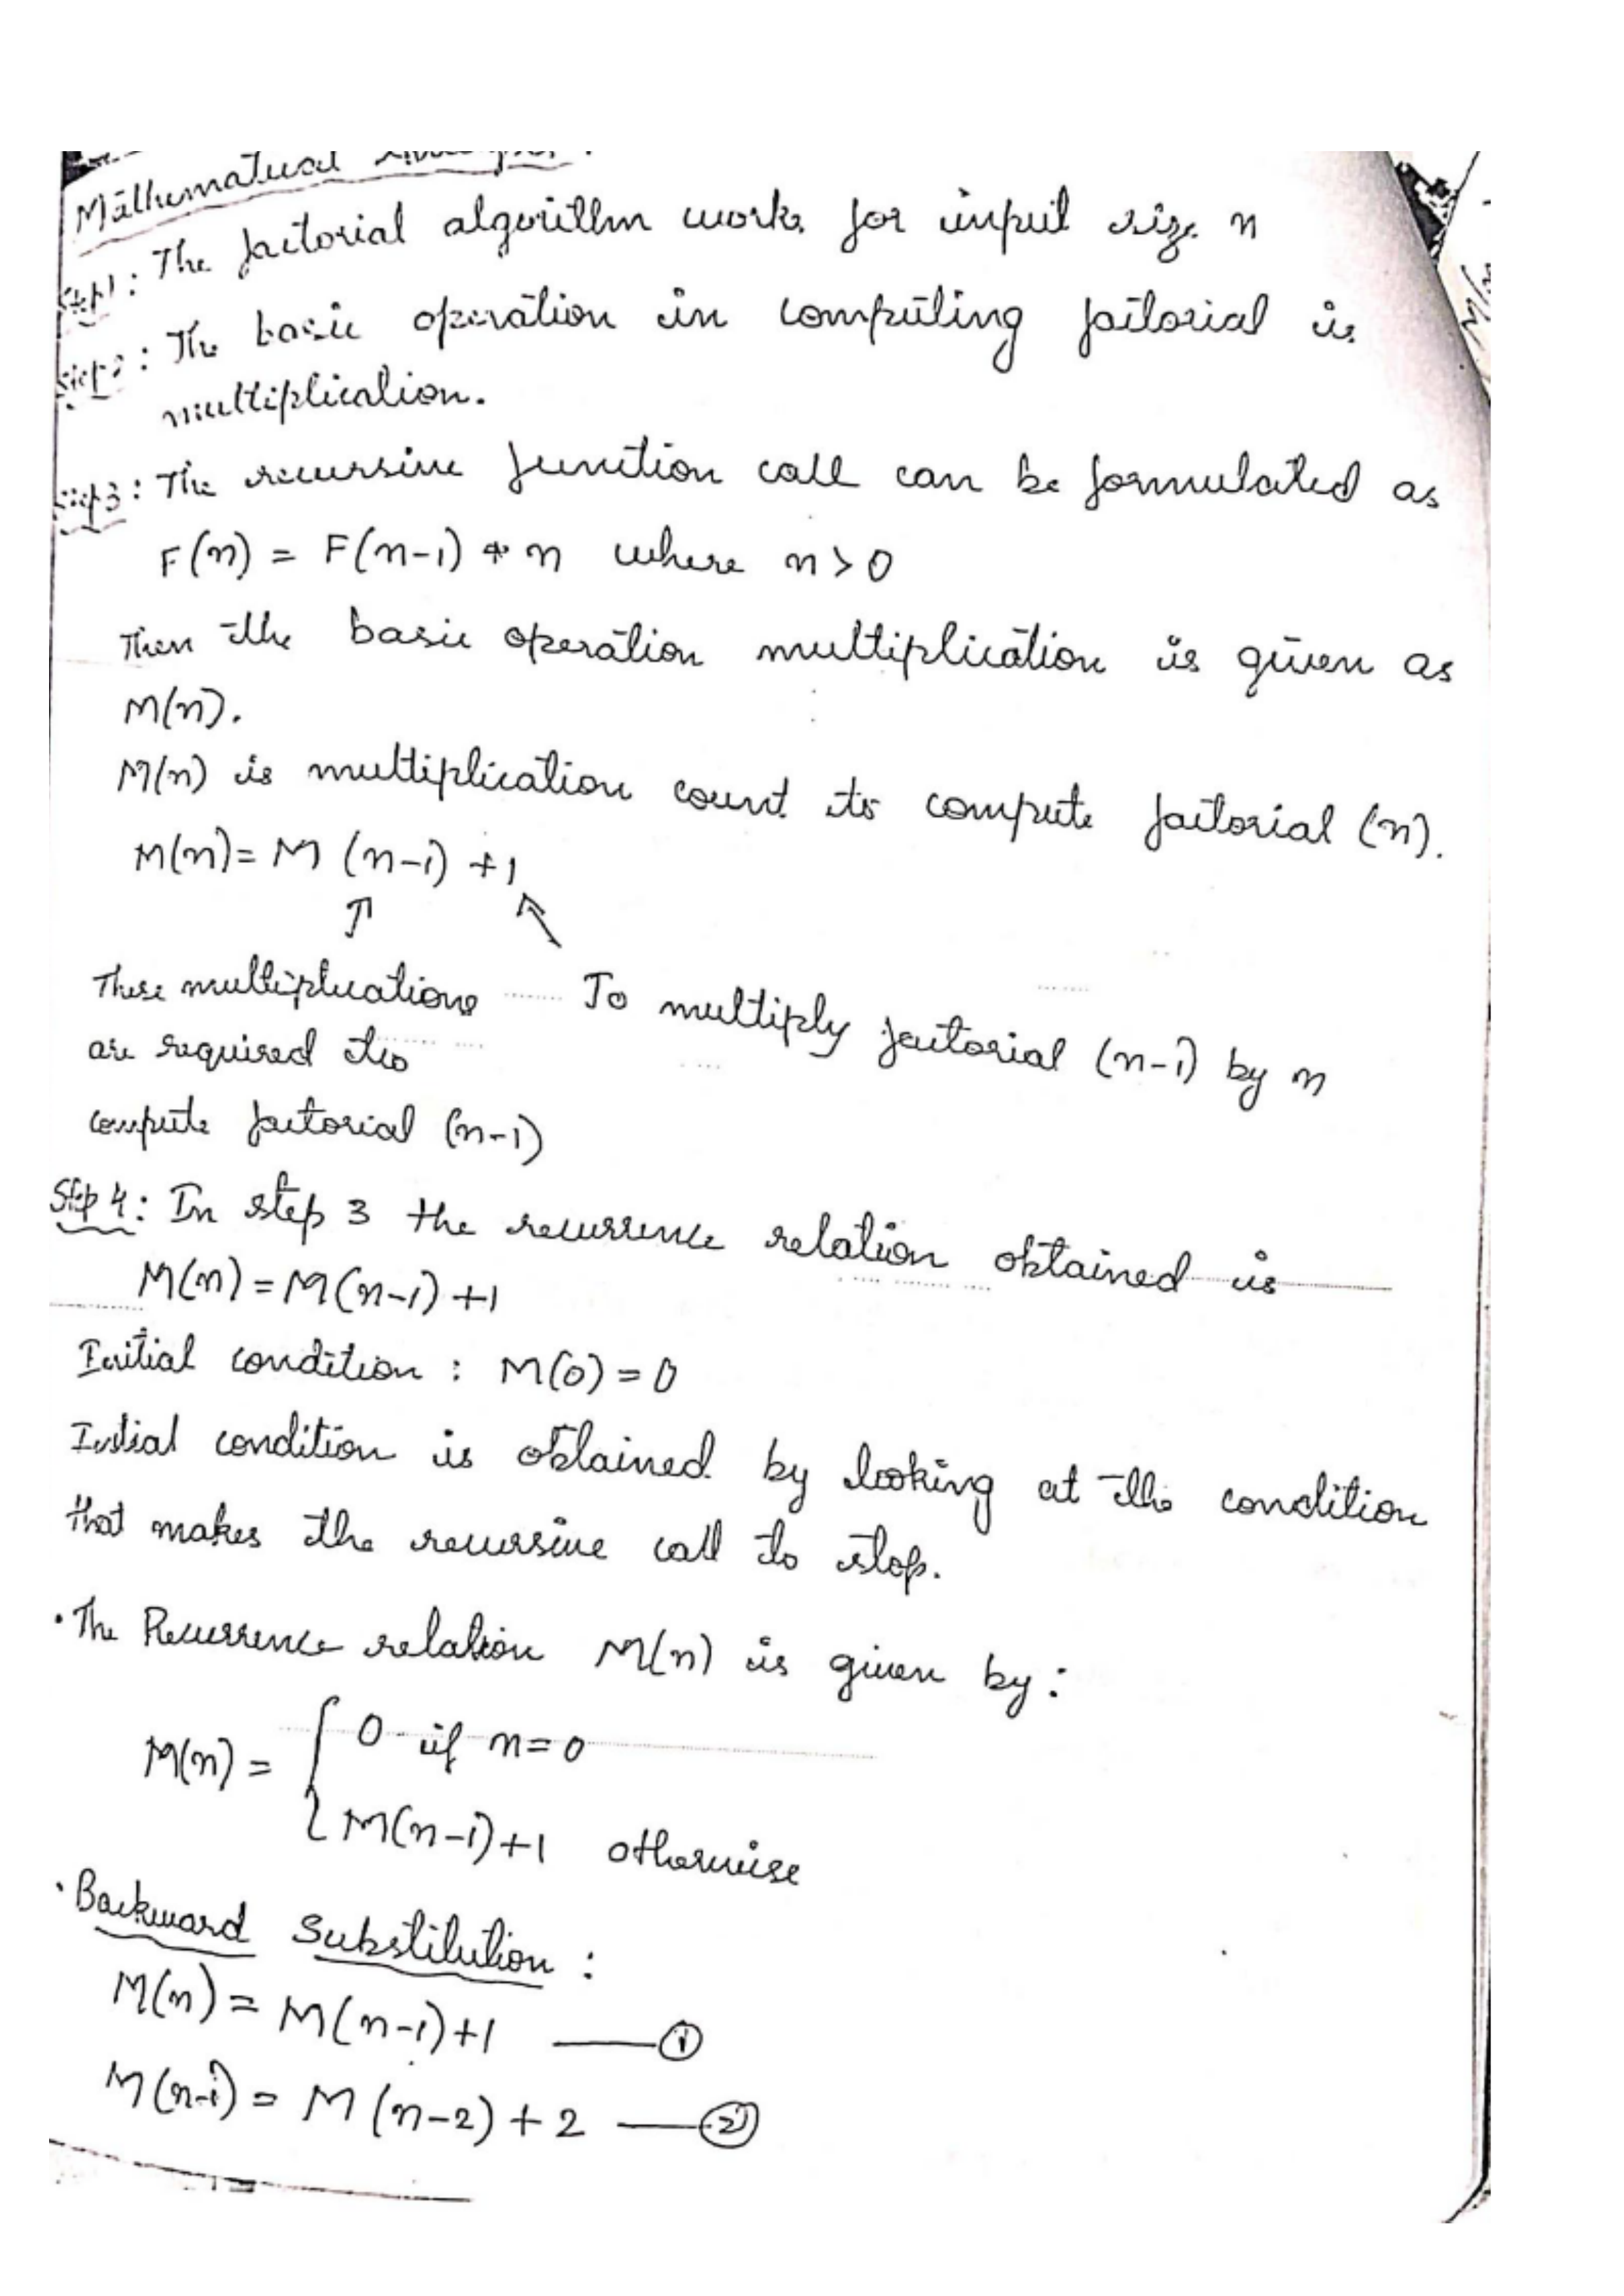 Mathematical Analysis:
Step1: The factorial algorithm works for input size n
Step2: The basic operation in computing factorial is
multiplication.
Step3: The recursive function call can be formulated as
F(n) = F(n-1) * n where n>0
Then the basic operation multiplication is given as
M(n).
M(n) is multiplication count to compute factorial (n).
M(n) = M (n-1) +1
↑ ↖
These multiplications To multiply factorial (n-1) by n
are required to
compute factorial (n-1)
Step 4: In step 3 the recurrence relation obtained is
M(n) = M(n-1) +1
Initial condition : M(0) = 0
Initial condition is obtained by looking at the condition
that makes the recursive call to stop.
• The Recurrence relation M(n) is given by:
M(n) = { 0 if n=0
{ M(n-1)+1 otherwise
• Backward Substitution :
M(n) = M(n-1)+1 —— ①
M(n-1) = M (n-2) + 2 —— ②